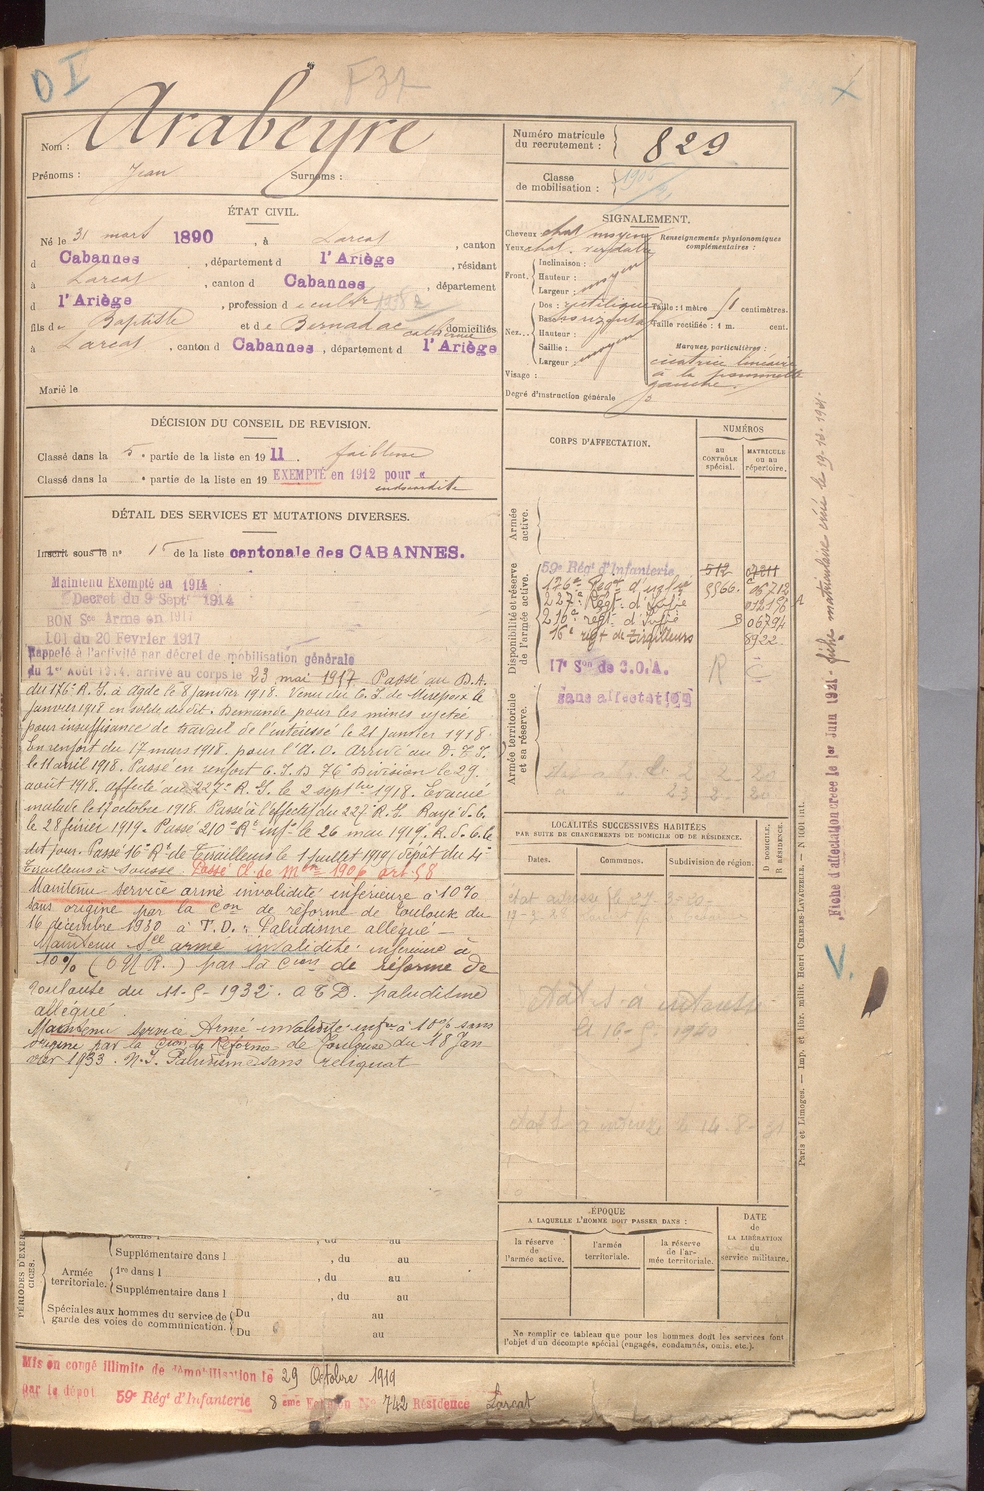 D I
F 37
Nom : Arabeyre
Prénoms : Jean Surnoms :
Numéro matricule du recrutement : 829
Classe de mobilisation :
ÉTAT CIVIL.
Né le 31 mars 1890, à Larcat, canton
d Cabannes, département d l'Ariège, résidant
à Larcat, canton d Cabannes, département
d l'Ariège, profession d
fils de Baptiste et de Bernadac Catherine domiciliés
à Larcat, canton d Cabannes, département d l'Ariège
Marié le
SIGNALEMENT.
Cheveux chat. moyen
Yeux chat. verdatre
Front. Inclinaison :
Hauteur : moyen
Largeur :
Nez... Dos : rectiligne
Base : horizontal
Hauteur :
Saillie : moyen
Largeur :
Visage :
Degré d'instruction générale 3
Renseignements physionomiques complémentaires :
Taille : 1 mètre 51 centimètres.
Taille rectifiée : 1 m. cent.
Marques particulières :
cicatrice linéaire
à la pommette
gauche.
DÉCISION DU CONSEIL DE REVISION.
Classé dans la 5e partie de la liste en 1911. faiblesse
Classé dans la e partie de la liste en 19 EXEMPTÉ en 1912 pour
endocardite
DÉTAIL DES SERVICES ET MUTATIONS DIVERSES.
Inscrit sous le n° 15 de la liste cantonale des CABANNES.
Maintenu Exempté en 1914
Décret du 9 Septt 1914
BON Sce Armé en 1917
LOI du 20 Février 1917
Rappelé à l'activité par décret de mobilisation générale
du 1er Août 1914. arrivé au corps le 23 mai 1917 Passé au D.A.
du 176e R.I. à Agde le 8 janvier 1918. Venu du C.I. de Mirepoix le
janvier 1918 en solde dudit. Demande pour les mines rejetée
pour insuffisance de travail de l'intéressé le 21 janvier 1918.
En renfort du 17 mars 1918. pour l'A.O. Arrivé au D.
le 11 avril 1918. Passé en renfort C.I.D 76e Division le 29
août 1918. affecté au 227e R.I. le 2 septbre 1918. Evacué
malade le 17 octobre 1918. Passé à l'effectif du 227e R.I. Rayé d. C.
le 28 février 1919. Passé 210e Rt infie le 26 mai 1919. R. d. C. le
dit jour. Passé 16e Rt de Tirailleurs le 1 juillet 1919 (dépôt du 4e
Tirailleurs à Sousse. Passé Cl. de mon 1906 art. 58
Maintenu service armé invalidité inférieure à 10%
sans origine par la Con de réforme de Toulouse du
16 décembre 1930 à T.D. : Paludisme allégué -
Maintenu Sce armé invalidité inférieure à
10% (O N R.) par la Cion de réforme de
Toulouse du 11-5-1932. a T D. paludisme
allégué.
Maintenu Service Armé invalidité infre à 10% sans
origine par la Cion de Réforme de Toulouse du 18 Jan
vier 1933. N.I. Paludisme sans reliquat
CORPS D'AFFECTATION.
NUMÉROS
AU CONTRÔLE spécial.
MATRICULE OU AU répertoire.
Armée active.
Disponibilité et réserve de l'armée active.
59e Régt d'Infanterie 512
176e Regt d'infie 5566
227e Regt. d'Infie
216e regt. d'Infie 06794
16e regt de tirailleurs 8922
17e Son de C.O.A. R C
Armée territoriale et sa réserve.
sans affectation
LOCALITÉS SUCCESSIVES HABITÉES
PAR SUITE DE CHANGEMENTS DE DOMICILE OU DE RÉSIDENCE.
Dates. Communes. Subdivision de région. D DOMICILE, R RÉSIDENCE.
ÉPOQUE
A LAQUELLE L'HOMME DOIT PASSER DANS :
la réserve de l'armée active.
l'armée territoriale.
la réserve de l'armée territoriale.
DATE DE LA LIBÉRATION du service militaire.
Ne remplir ce tableau que pour les hommes dont les services font
l'objet d'un décompte spécial (engagés, condamnés, omis. etc.).
PÉRIODES D'EXERCICES.
Supplémentaire dans l , du au
Armée territoriale. 1re dans l , du au
Supplémentaire dans l , du au
Spéciales aux hommes du service de garde des voies de communication. Du au
Du au
Mis en congé illimité de démobilisation le 29 Octobre 1919
par le dépôt 59e Régt d'Infanterie 8eme No 742 Résidence Larcat
Paris et Limoges. — Imp. et libr. milit. Henri CHARLES-LAVAUZELLE. — N° 1001 int.
Fiche d'affectation créée le 1er Juin 1921 - fiche matriculaire créé le 19-10-1931.
V.